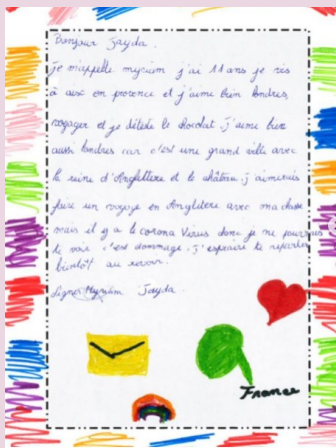 Bonjour Jayda.
je m'appelle myriam j'ai 11 ans je vis
à aix en provence et j'aime bien londres,
voyager et je déteste le chocolat. j'aime bien
aussi londres car c'est une grand ville avec
la reine d'Angleterre et le château. j'aimerais
faire un voyage en Angleterre avec ma classe
mais il y a le corona Virus donc je ne pourrais
te voir. c'est dommage. J'espère te reparler
bientôt au revoir.
Signer Myriam Jayda.
France